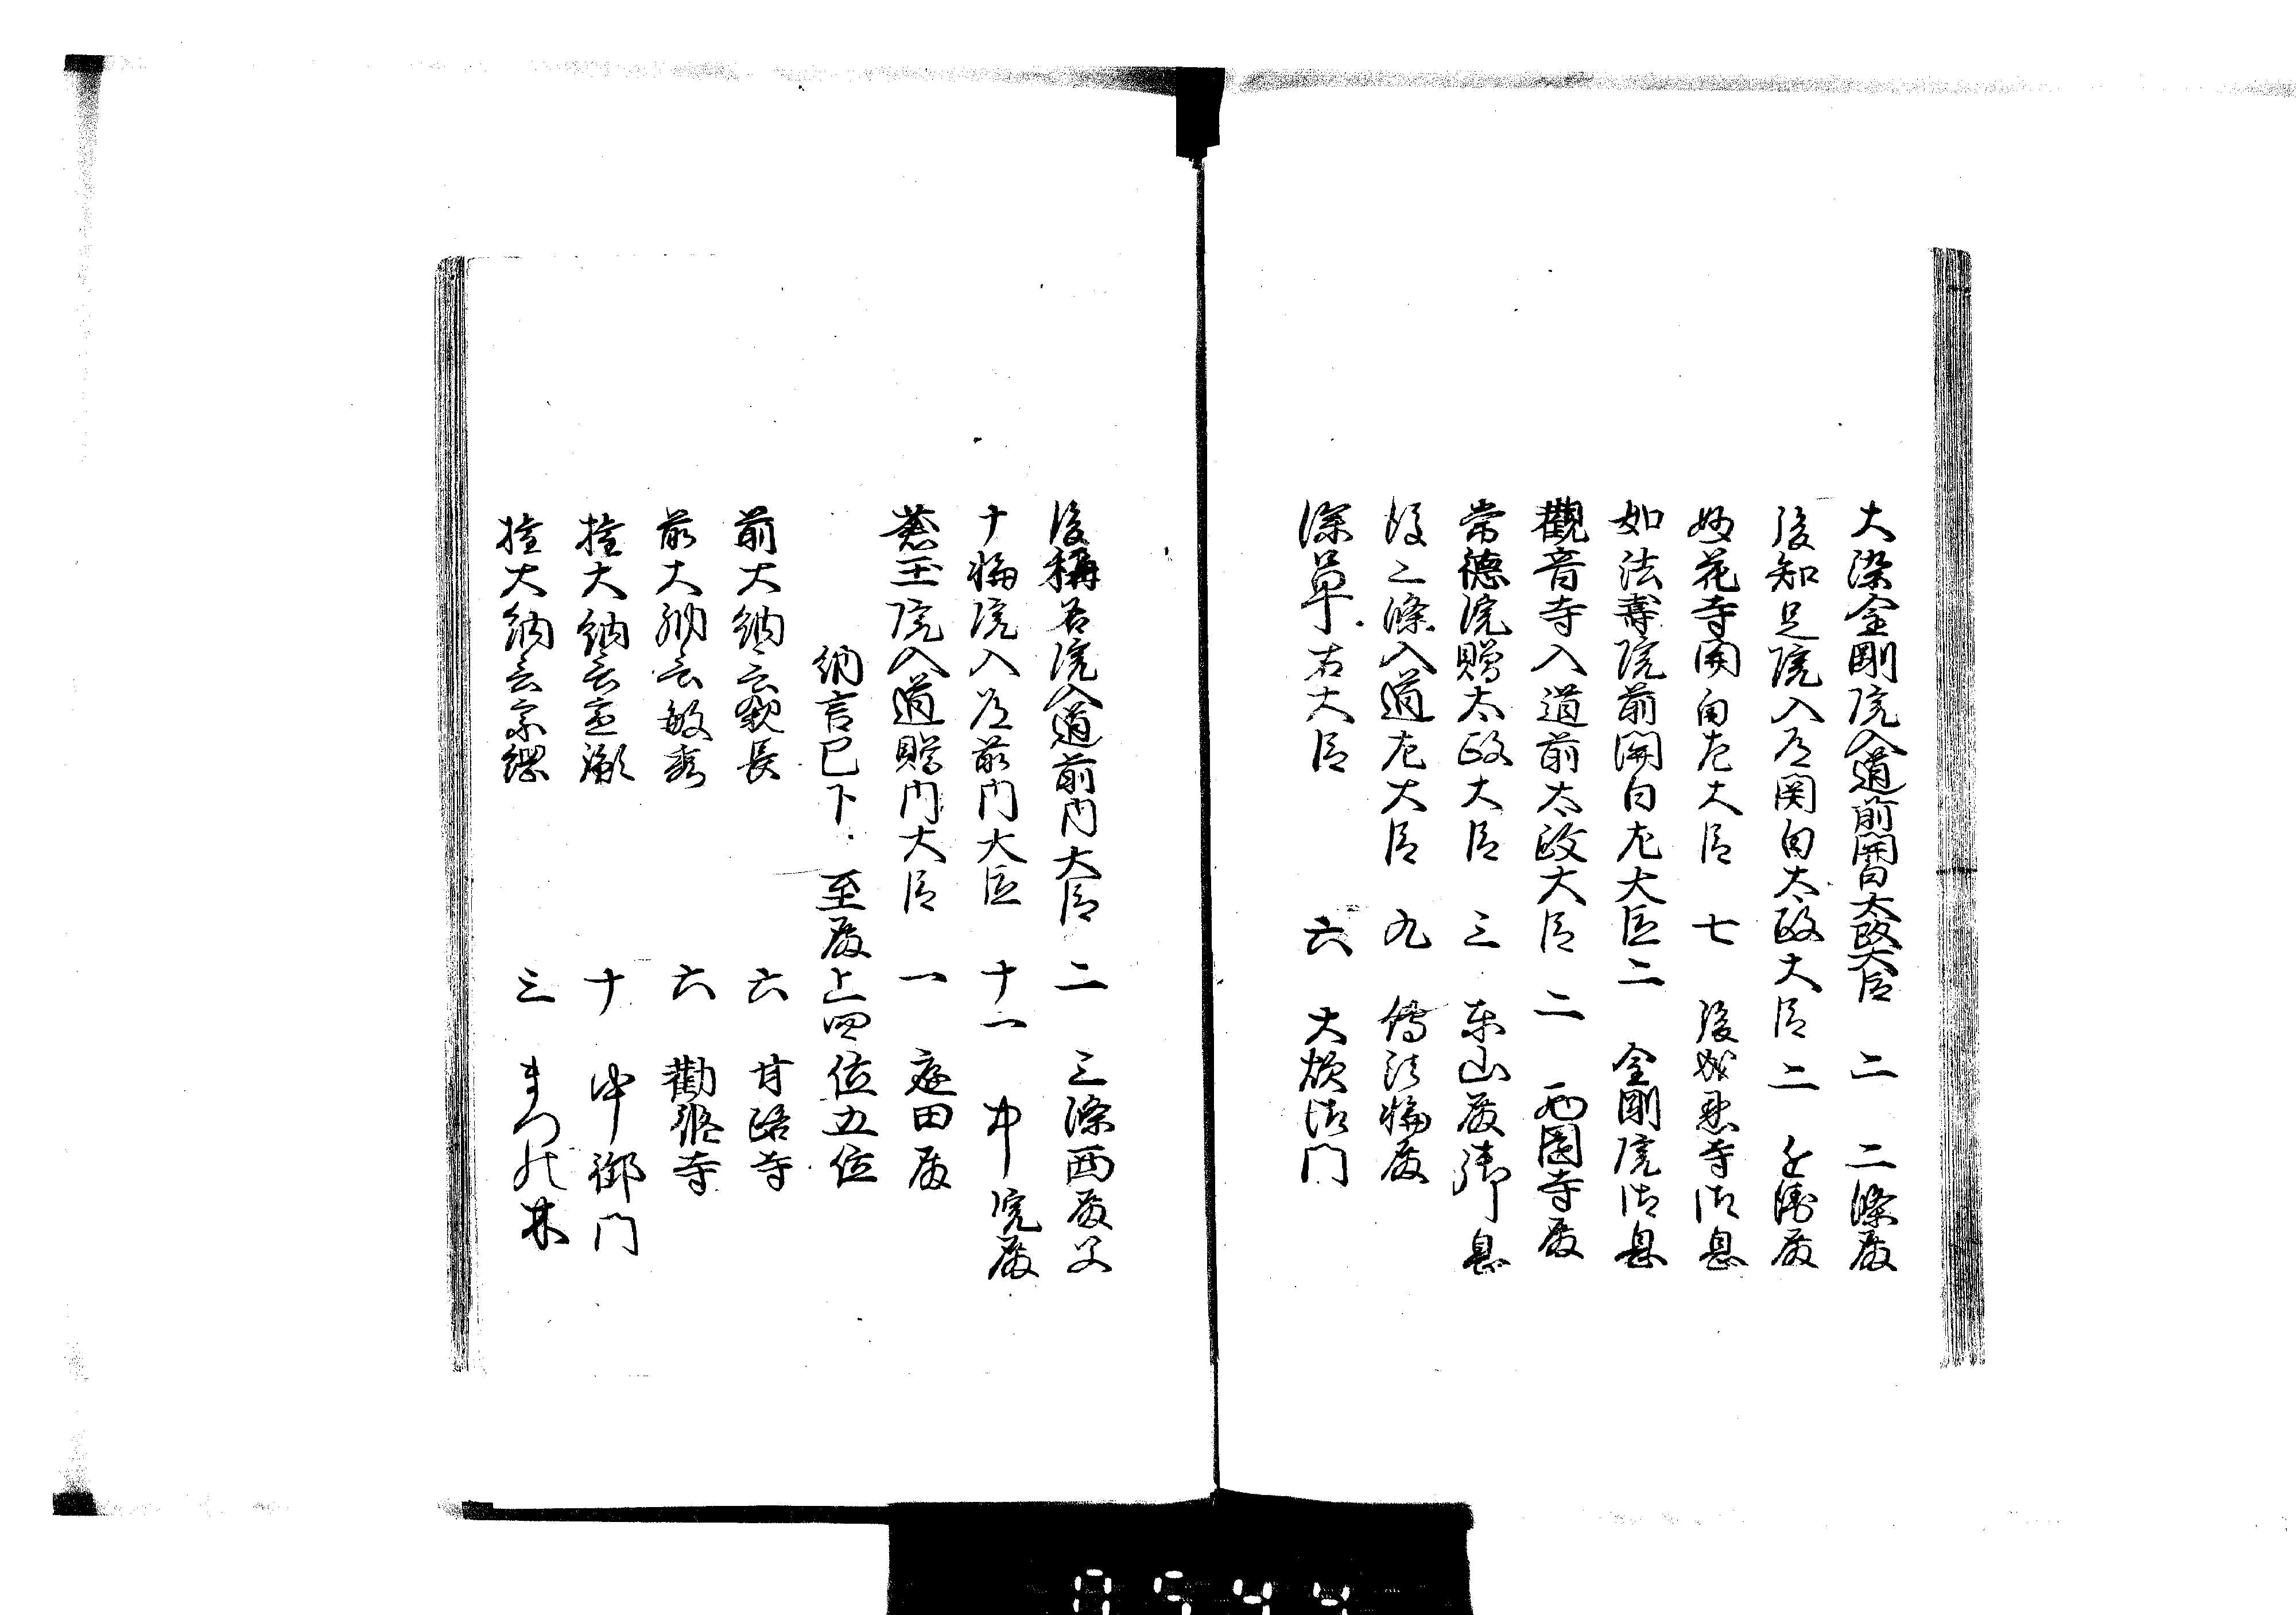 大染金剛院入道前関白太政大臣 二 二條殿
後知足院入道関白太政大臣 二 近衛殿
妙花寺関白左大臣 七 後成恩寺御息
如法寿院前関白左大臣 二 金剛院御息
觀音寺入道前太政大臣 二 西園寺殿
常徳院贈太政大臣 三 東山殿御息
後三條入道左大臣 九 轉法輪殿
深草右大臣 六 大炊御門
後稱名院入道前内大臣 二 三條西殿父
十輪院入道前内大臣 十一 中院殿
蒼玉院入道贈内大臣 一 庭田殿
納言已下 至殿上四位五位
前大納言親長 六 甘露寺
前大納言敏秀 六 勸修寺
権大納言宣胤 十 中御門
権大納言宗綱 三 まつの木